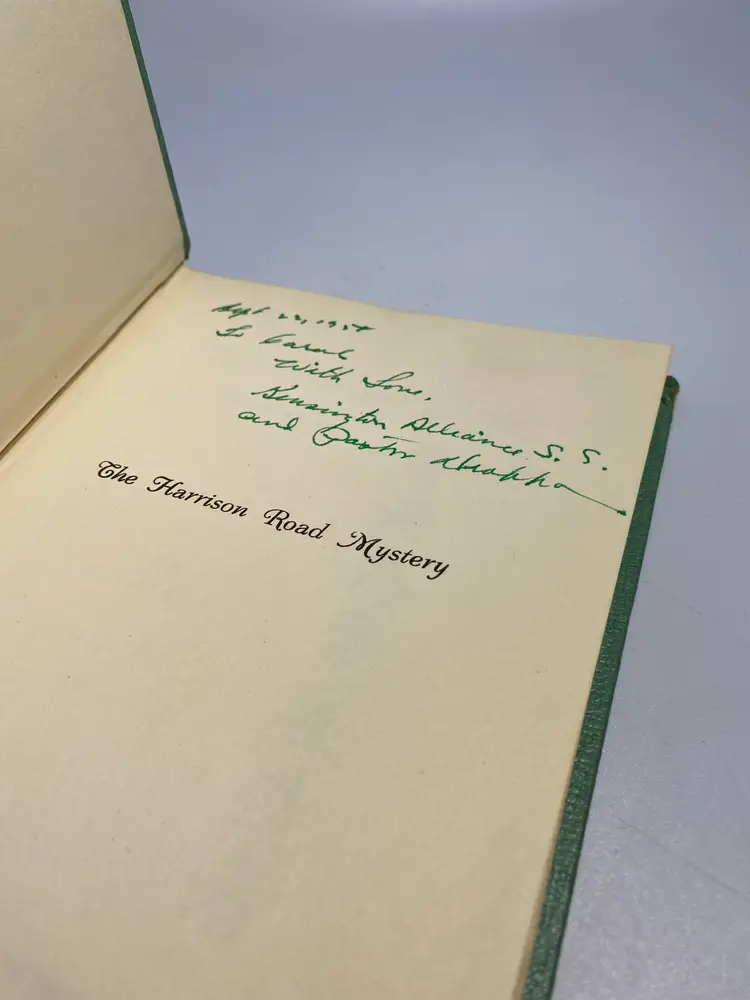 Sept 1954
To Carol
With Love,
Kensington Alliance S. S.
and Pastor
The Harrison Road Mystery